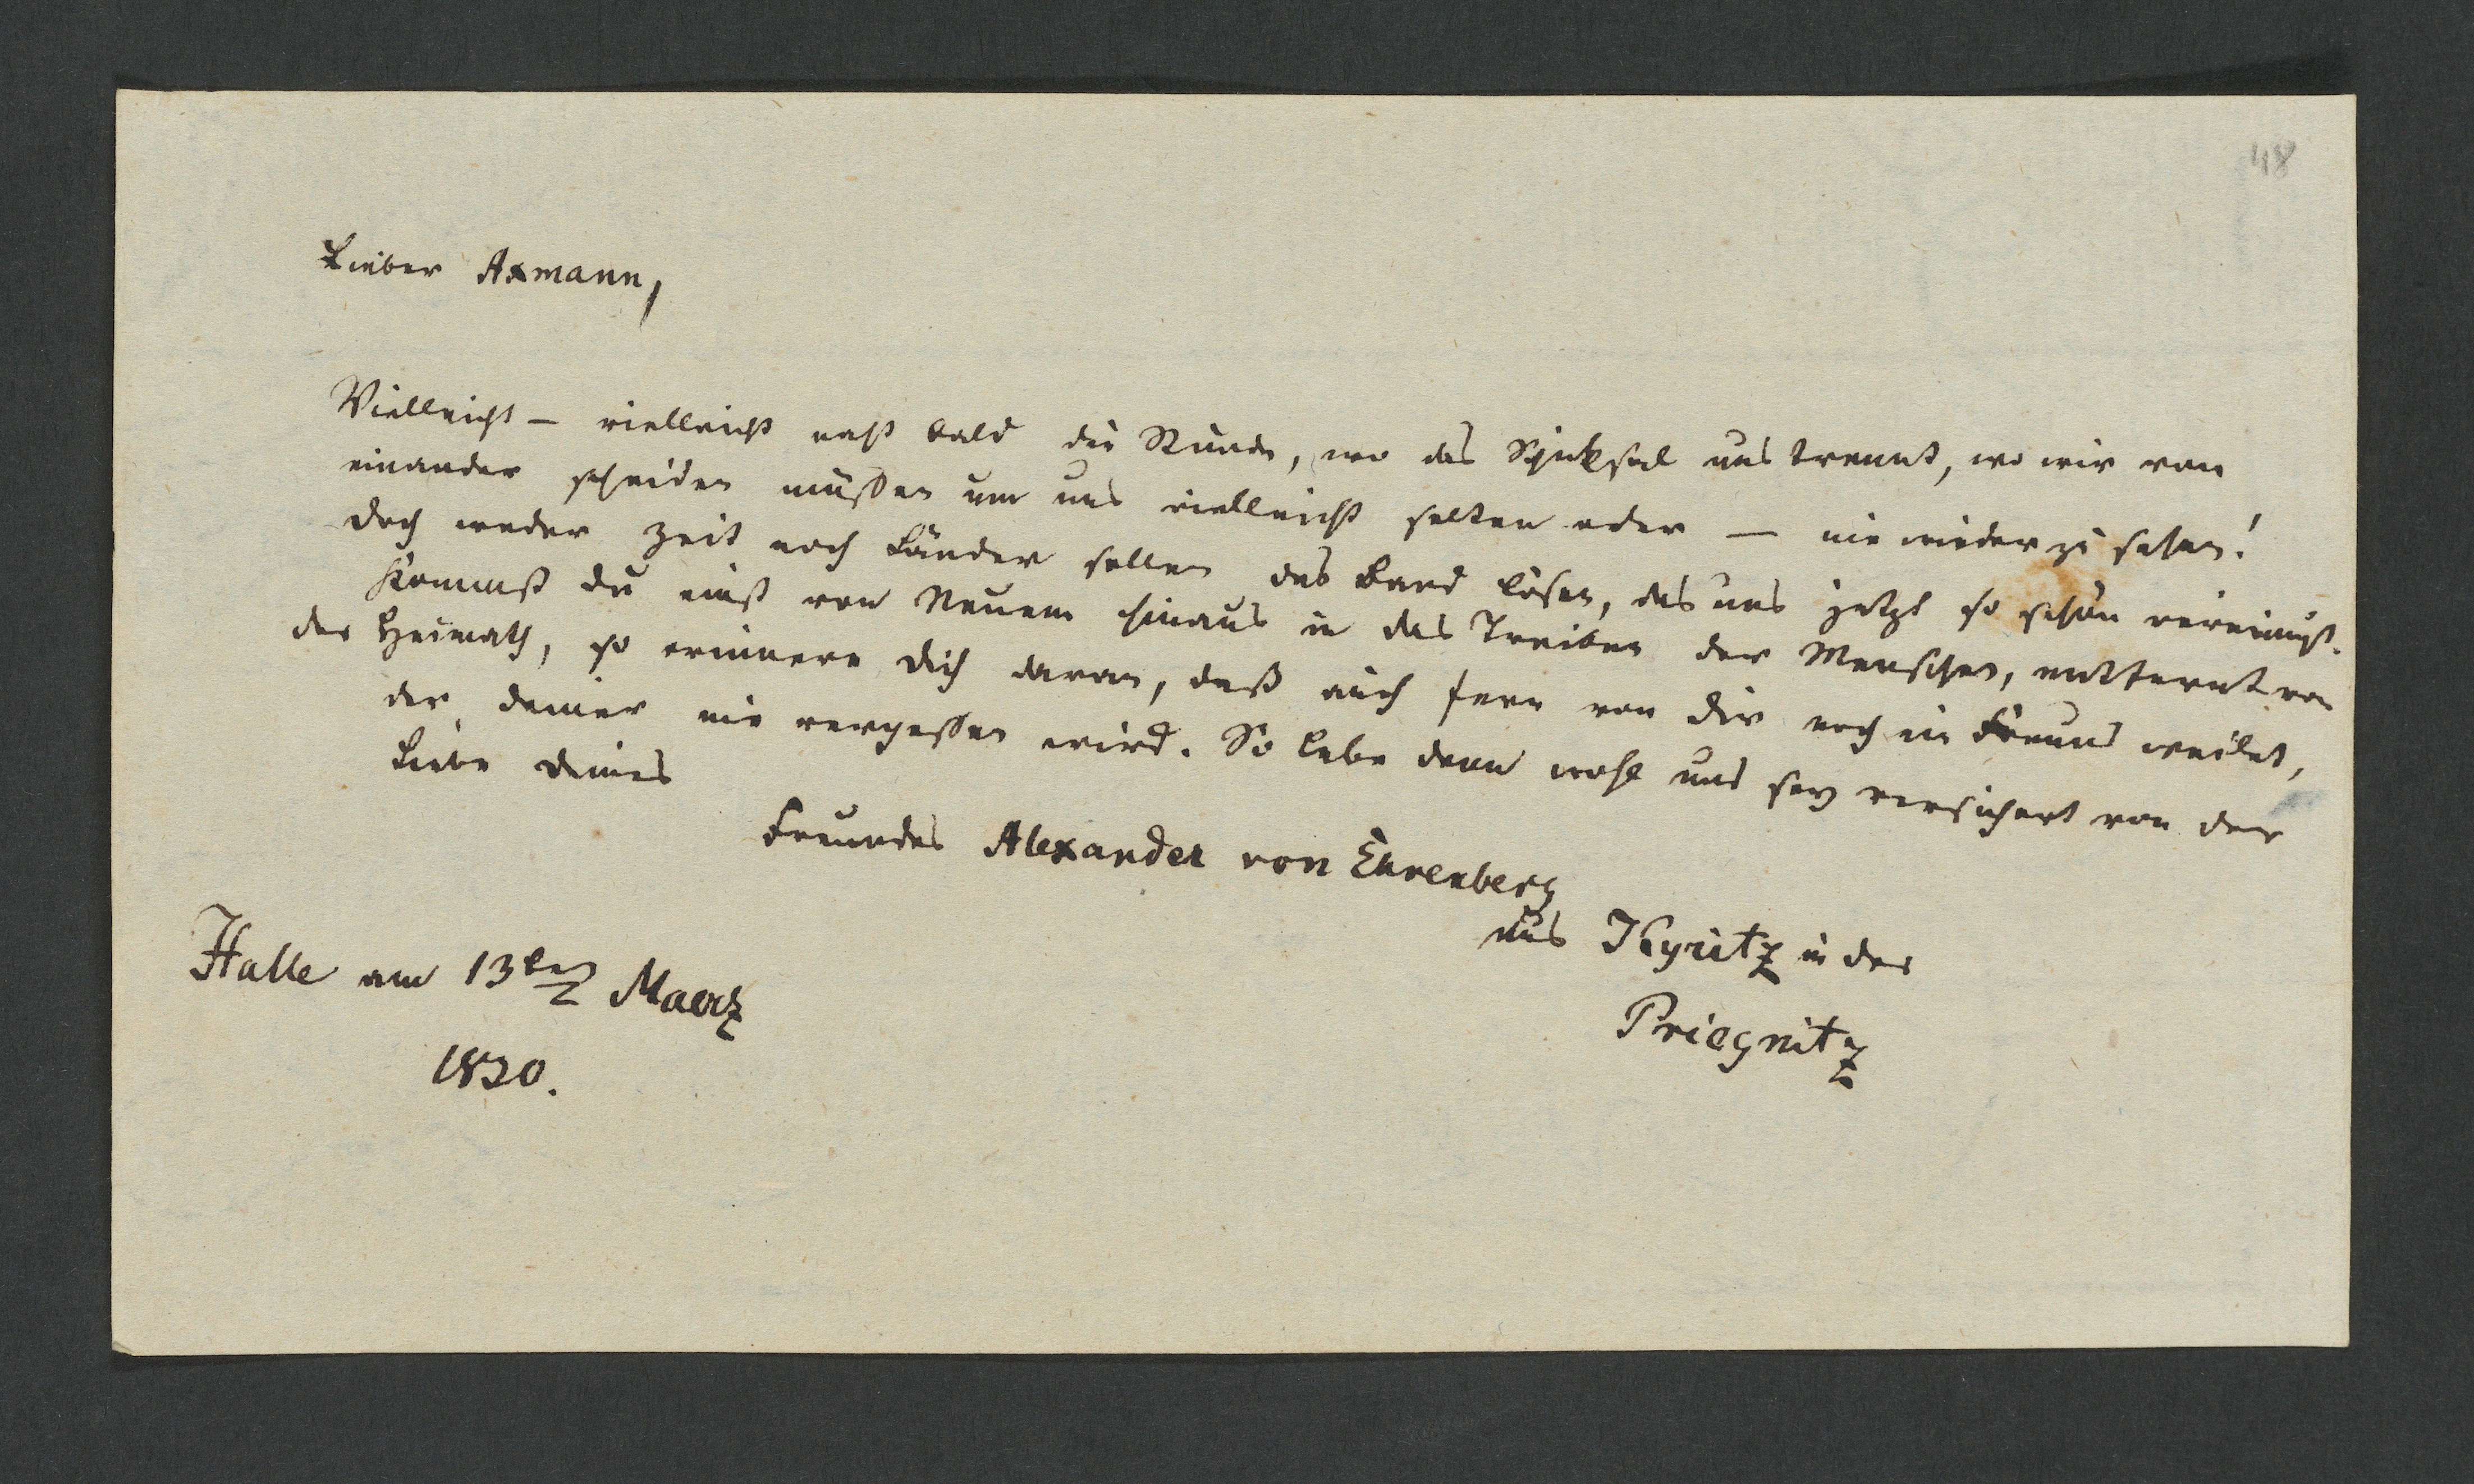 48
Lieber Axmann,
Vielleicht – vielleicht naht bald die Stunde, wo das Schicksal uns trennt, wo wir von
einander scheiden müssen um uns vielleicht selten oder — nie wieder zu sehen!
Doch weder Zeit noch Länder sollen das Band lösen, das uns jetzt so schön vereinigt.
Kommst du einst von Neuem hinaus in das Treiben der Menschen, entfernt von
der Heimath, so erinnere dich daran, daß auch fern von dir noch ein Freund weilet,
der deiner nie vergessen wird. So lebe denn wohl und sey versichert von der
Liebe deines
Freundes Alexander von Ehrenberg
aus Kyritz in der
Priegnitz
Halle am 13ten Maerz
1820.